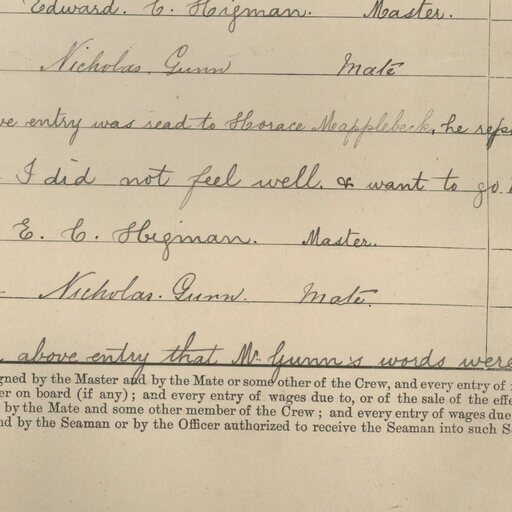 Edward. C. Higman. Master.
Nicholas. Gunn Mate
ve entry was read to Horace Mapplebeck, he rep
I did not feel well. & want to go
E. C. Higman. Master.
Nicholas. Gunn. Mate.
above entry that Mr. Gunn's words were
gned by the Master and by the Mate or some other of the Crew, and every entry of
er on board (if any); and every entry of wages due to, or of the sale of the effe
by the Mate and some other member of the Crew; and every entry of wages due
nd by the Seaman or by the Officer authorized to receive the Seaman into such S